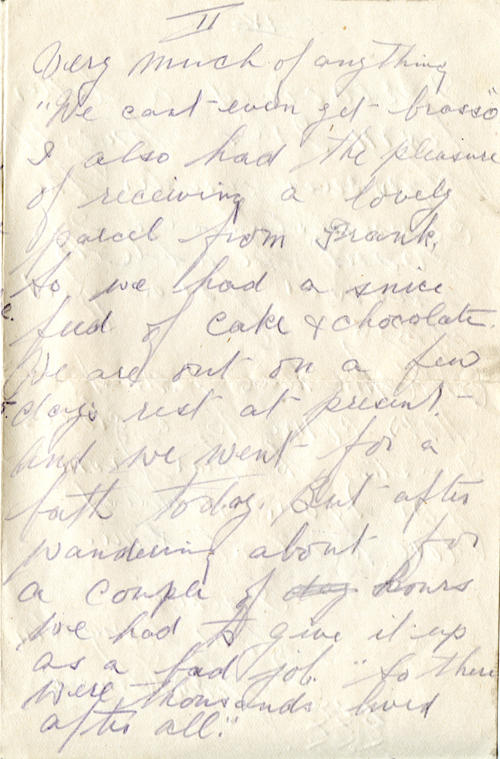 II
Very much of anything
"We cant even get brasso"
I also had the pleasure
of receiving a lovely
parcel from Frank.
So we had a snice
feed of cake & chocolate
We are out on a few
days rest at present.
and we went for a
bath today. But after
wandering about for
a couple of day hours
we had to give it up
as a bad job. "So there
were thousands lived
after all."